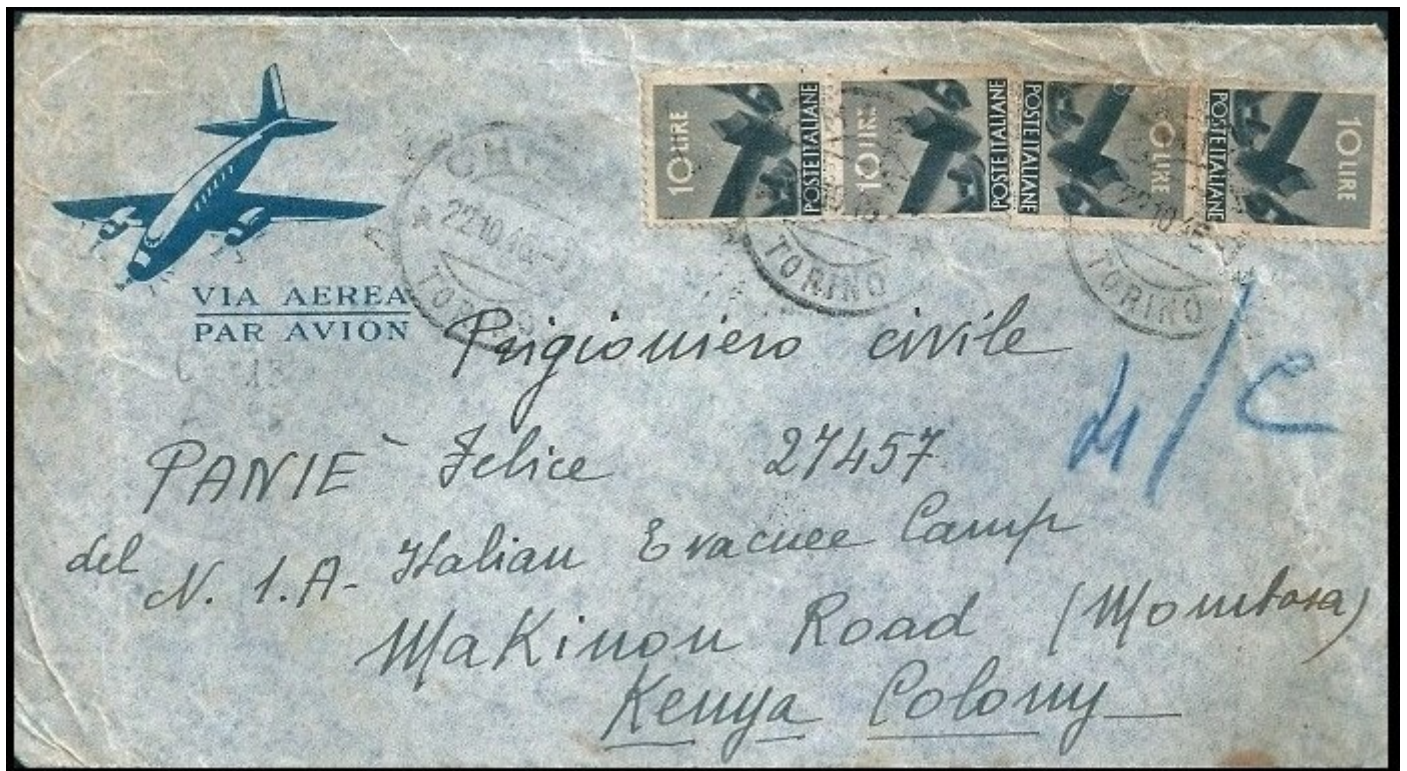 10 LIRE POSTE ITALIANE
10 LIRE POSTE ITALIANE
POSTE ITALIANE 10 LIRE
POSTE ITALIANE 10 LIRE
22.10.46
TORINO
TORINO
TORINO
VIA AEREA
PAR AVION
Prigioniero civile
PANIE` Felice 27457
del N. 1.A- Italian Evacuee Camp
MaKinon Road (Mombasa)
Kenya Colony